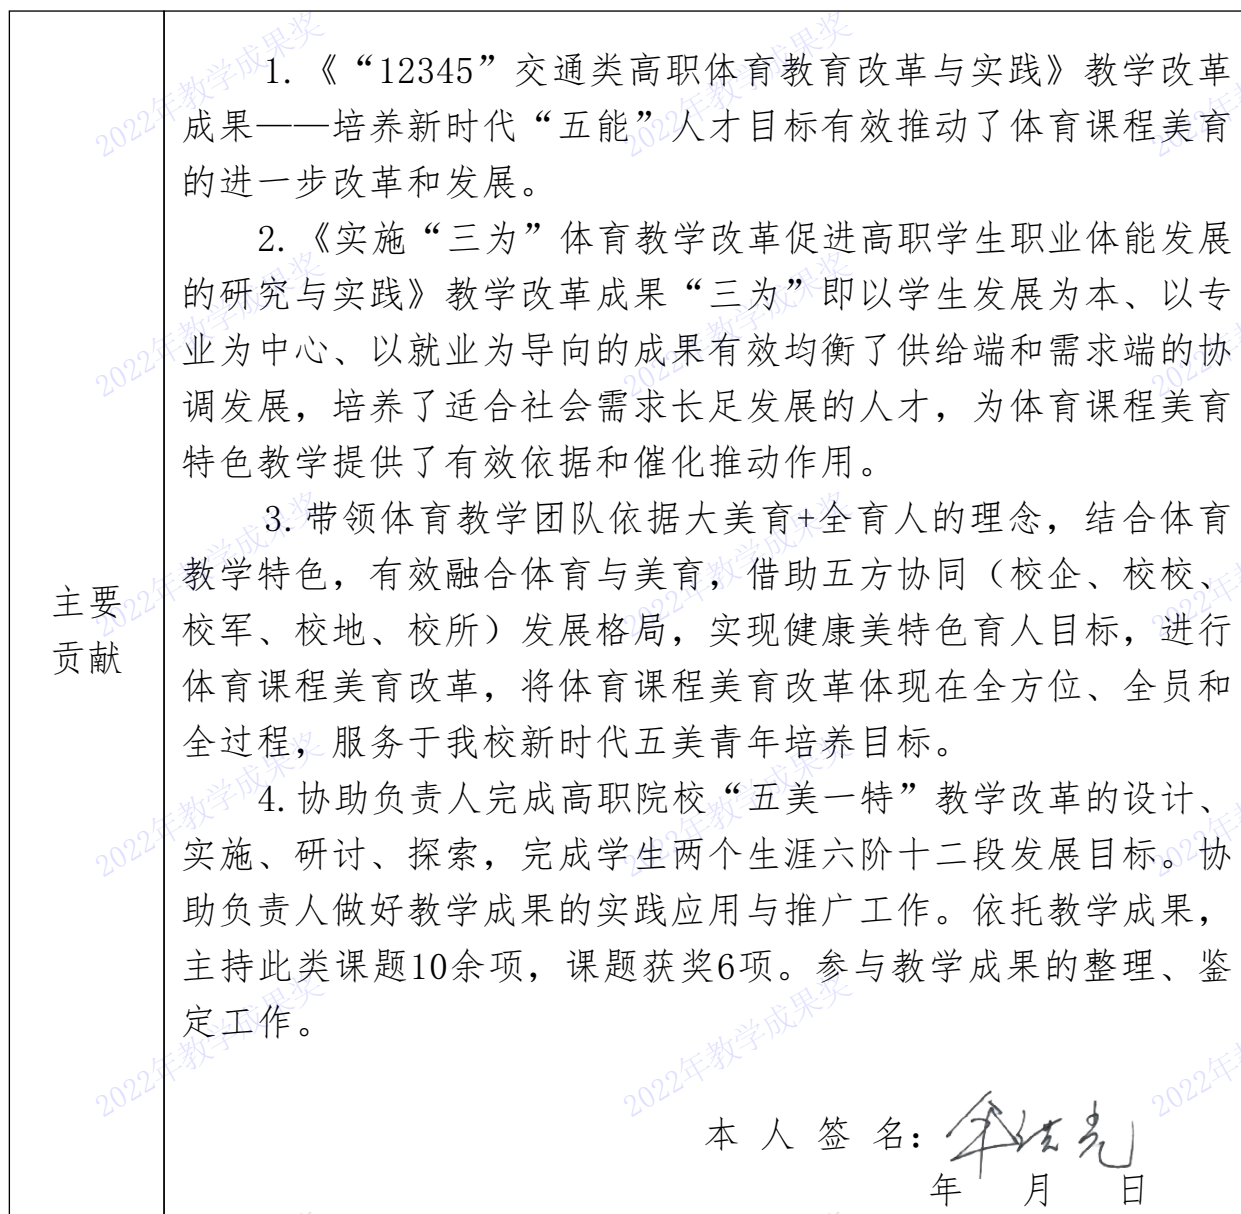 主要
贡献
1.《“12345”交通类高职体育教育改革与实践》教学改革
成果——培养新时代“五能”人才目标有效推动了体育课程美育
的进一步改革和发展。
2.《实施“三为”体育教学改革促进高职学生职业体能发展
的研究与实践》教学改革成果“三为”即以学生发展为本、以专
业为中心、以就业为导向的成果有效均衡了供给端和需求端的协
调发展，培养了适合社会需求长足发展的人才，为体育课程美育
特色教学提供了有效依据和催化推动作用。
3.带领体育教学团队依据大美育+全育人的理念，结合体育
教学特色，有效融合体育与美育，借助五方协同（校企、校校、
校军、校地、校所）发展格局，实现健康美特色育人目标，进行
体育课程美育改革，将体育课程美育改革体现在全方位、全员和
全过程，服务于我校新时代五美青年培养目标。
4.协助负责人完成高职院校“五美一特”教学改革的设计、
实施、研讨、探索，完成学生两个生涯六阶十二段发展目标。协
助负责人做好教学成果的实践应用与推广工作。依托教学成果，
主持此类课题10余项，课题获奖6项。参与教学成果的整理、鉴
定工作。
本人签名：
年 月 日
2022年教学成果奖